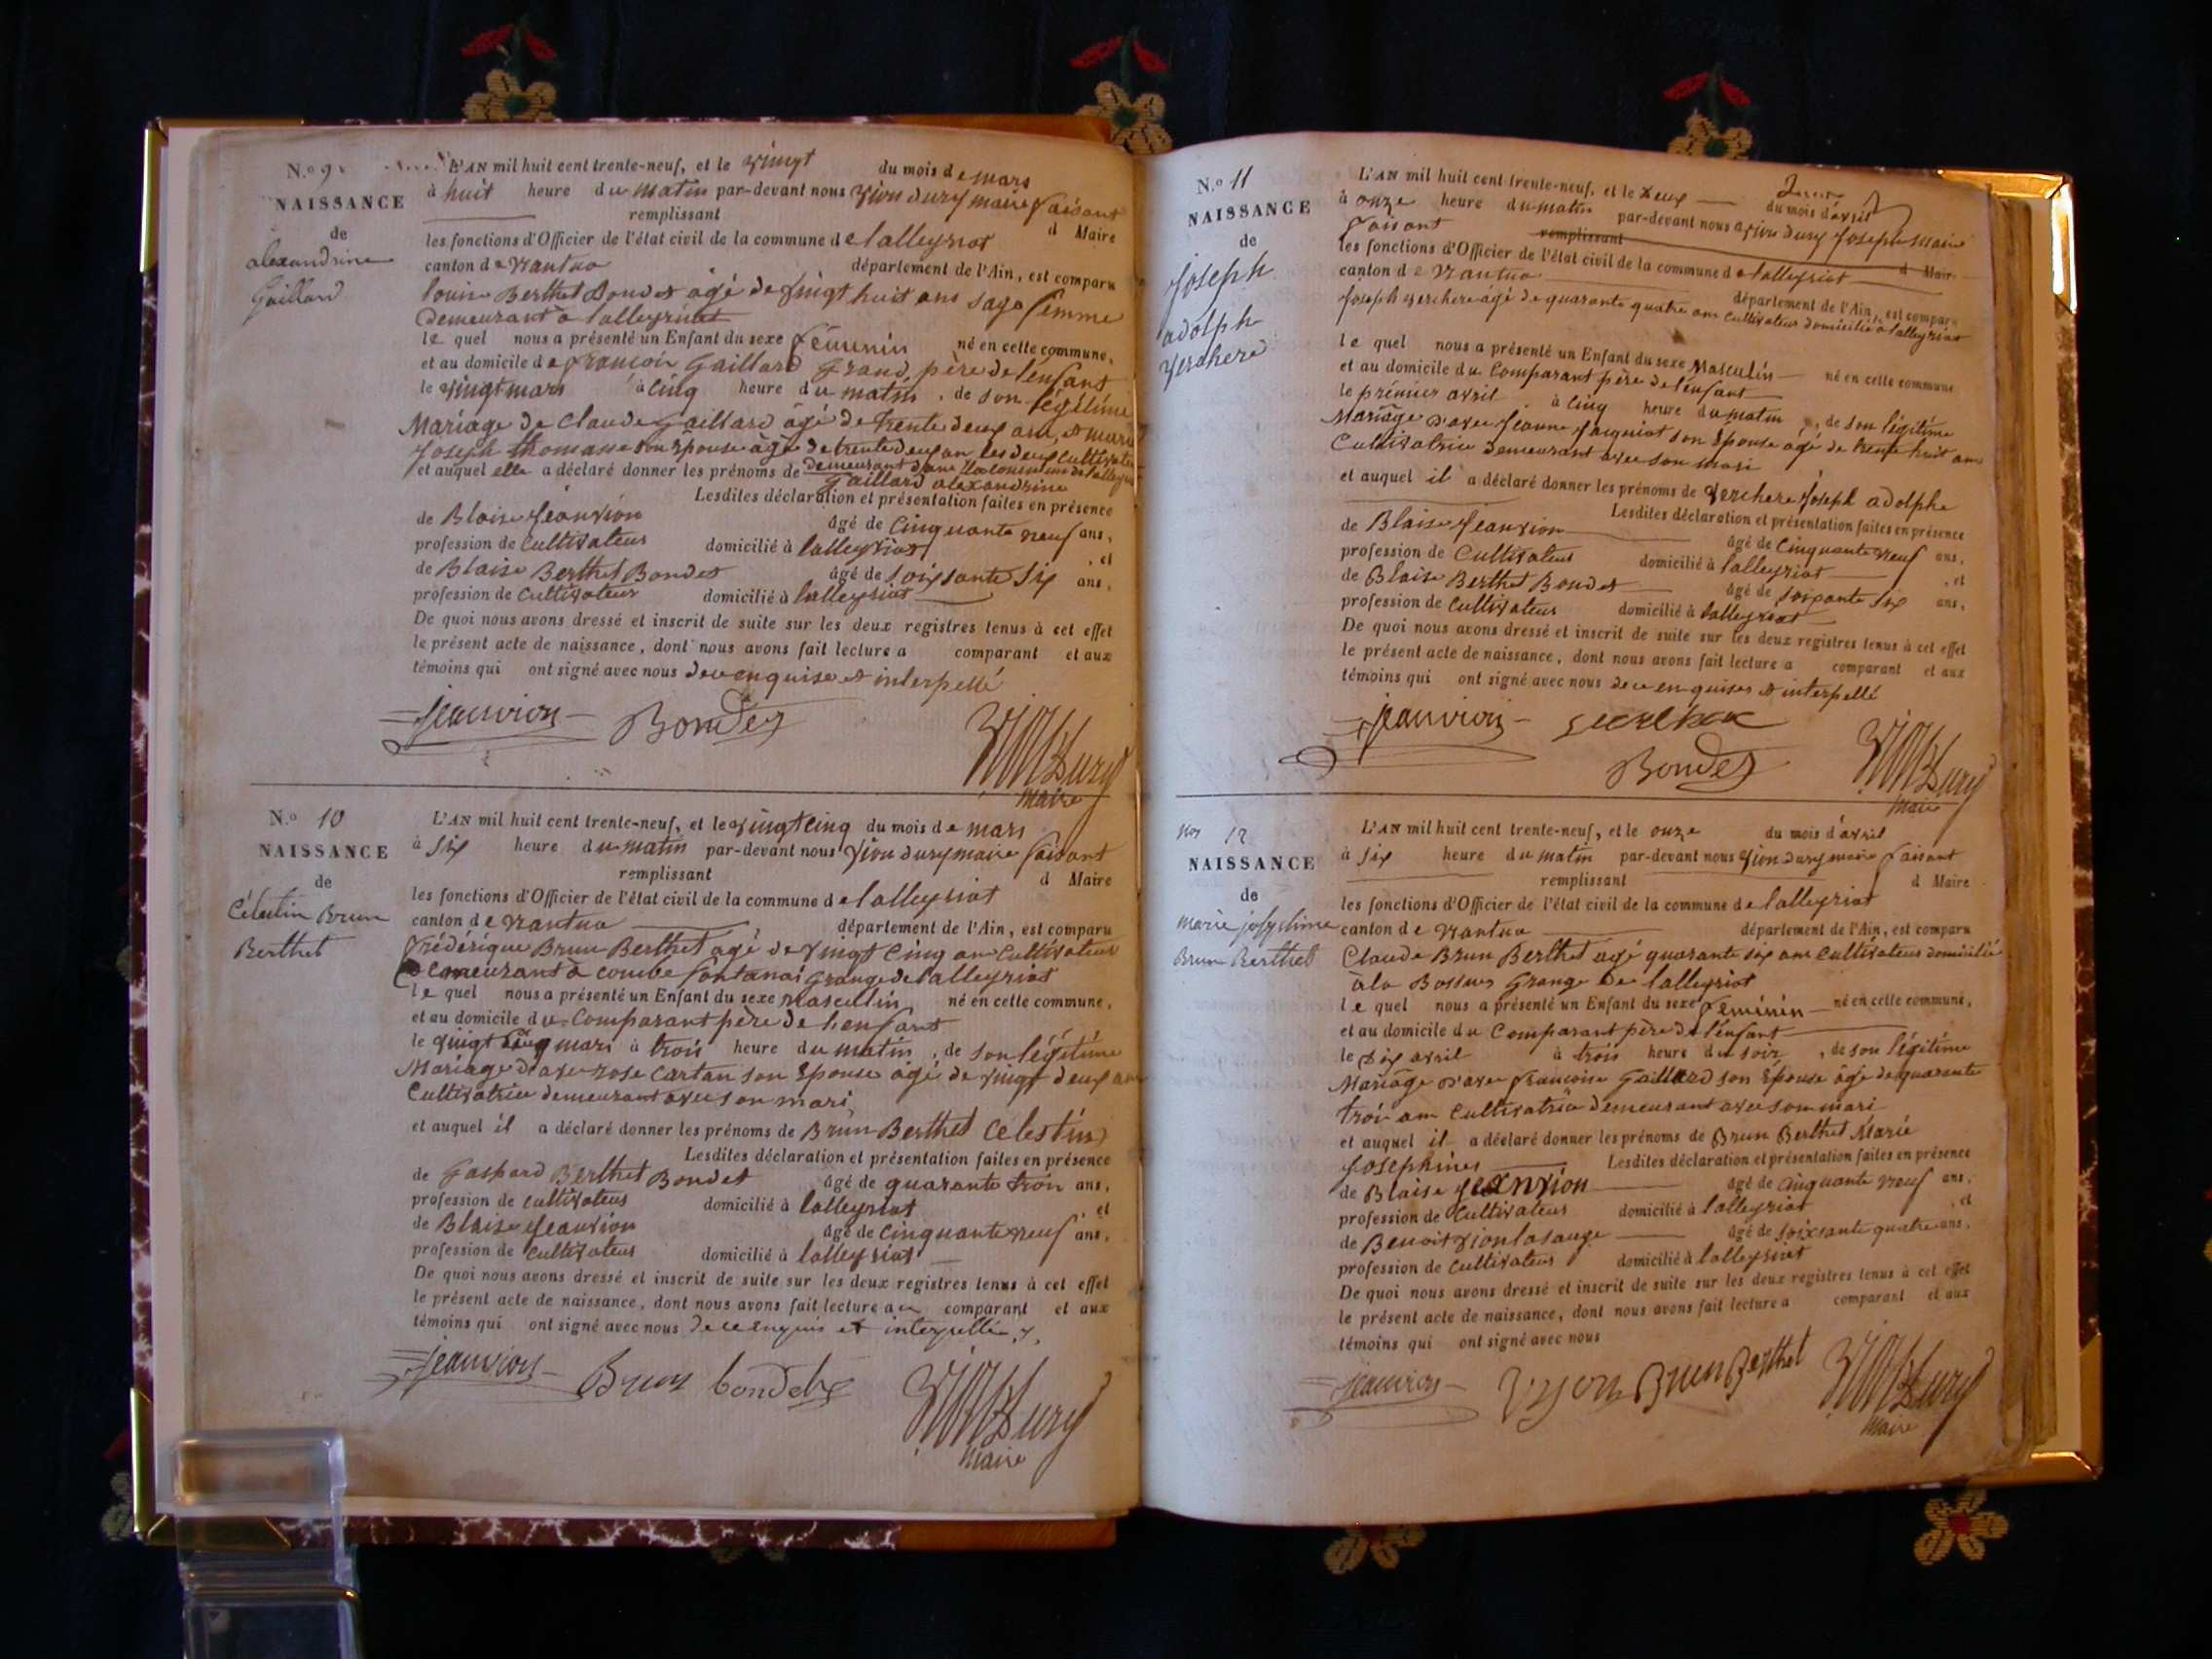 N.o 9
NAISSANCE
de
alexandrine
Gaillard
L'AN mil huit cent trente-neuf, et le vingt du mois de mars
à huit heure du matin par-devant nous vion dury maire faisant
remplissant d Maire
les fonctions d'Officier de l'état civil de la commune de lalleyriat
canton de Nantua département de l'Ain, est comparu
louise Berthet Bondet âgé de vingt huit ans sage femme
demeurant à lalleyriat
le quel nous a présenté un Enfant du sexe féminin né en cette commune,
et au domicile de françois Gaillard Grand père de l'enfant
le vingt mars à cinq heure du matin, de son légitime
Mariage de Claude Gaillard âgé de trente deux ans, et marie
Joseph thomasse son épouse âgé de trente deux an les deux cultivateur
et auquel elle a déclaré donner les prénoms de demeurant dans la commune de lalleyriat
Gaillard alexandrine
Lesdites déclaration et présentation faites en présence
de Blaise Jeanvion âgé de cinquante neuf ans,
profession de cultivateur domicilié à lalleyriat, et
de Blaise Berthet Bondet âgé de soixsante six ans,
profession de cultivateur domicilié à lalleyriat
De quoi nous avons dressé et inscrit de suite sur les deux registres tenus à cet effet
le présent acte de naissance, dont nous avons fait lecture a comparant et aux
témoins qui ont signé avec nous de ce enquise et interpellé
Jeanvion Bondet
vion Dury
maire
N.o 10
NAISSANCE
de
Célestin Brun
Berthet
L'AN mil huit cent trente-neuf, et le vingt cinq du mois de mars
à six heure du matin par-devant nous vion dury maire faisant
remplissant d Maire
les fonctions d'Officier de l'état civil de la commune de lalleyriat
canton de Nantua département de l'Ain, est comparu
frédérique Brun Berthet âgé de vingt cinq an cultivateur
demeurant à combe fontanai grange de lalleyriat
le quel nous a présenté un Enfant du sexe masculin né en cette commune,
et au domicile du comparant père de l'enfant
le vingt cinq mars à trois heure du matin, de son légitime
Mariage d'avec rose Cartan son épouse âgé de vingt deux ans
Cultivatrice demeurant avec son mari,
et auquel il a déclaré donner les prénoms de Brun Berthet Celestin
Lesdites déclaration et présentation faites en présence
de Gaspard Berthet Bondet âgé de quarante trois ans,
profession de cultivateur domicilié à lalleyriat et
de Blaise Jeanvion âgé de cinquante neuf ans,
profession de cultivateur domicilié à lalleyriat
De quoi nous avons dressé et inscrit de suite sur les deux registres tenus à cet effet
le présent acte de naissance, dont nous avons fait lecture au comparant et aux
témoins qui ont signé avec nous de ce enquis et interpellé
Jeanvion Brun bondet
vion Dury
maire
N.o 11
NAISSANCE
de
Joseph
adolphe
Verchere
L'AN mil huit cent trente-neuf, et le deux du mois d'avril
à onze heure du matin par-devant nous vion dury Joseph maire
faisant remplissant d Maire
les fonctions d'Officier de l'état civil de la commune de lalleyriat
canton de Nantua département de l'Ain, est comparu
Joseph verchere âgé de quarante quatre ans cultivateur domicilié à lalleyriat
le quel nous a présenté un Enfant du sexe Masculin né en cette commune
et au domicile du comparant père de l'enfant
le prémier avril à cinq heure du matin, de son légitime
Mariage d'avec Jeanne Jacquiot son épouse âgé de trente huit ans
Cultivatrice demeurant avec son mari
et auquel il a déclaré donner les prénoms de verchere Joseph adolphe
Lesdites déclaration et présentation faites en présence
de Blaise Jeanvion âgé de cinquante neuf ans,
profession de cultivateur domicilié à lalleyriat, et
de Blaise Berthet Bondet âgé de soixante six ans,
profession de cultivateur domicilié à lalleyriat
De quoi nous avons dressé et inscrit de suite sur les deux registres tenus à cet effet
le présent acte de naissance, dont nous avons fait lecture a comparant et aux
témoins qui ont signé avec nous de ce enquises et interpellé
Jeanvion
Bondet
vion Dury
maire
12
NAISSANCE
de
marie josephine
Brun Berthet
L'AN mil huit cent trente-neuf, et le onze du mois d'avril
à six heure du matin par-devant nous vion dury maire faisant
remplissant d Maire
les fonctions d'Officier de l'état civil de la commune de lalleyriat
canton de Nantua département de l'Ain, est comparu
Claude Brun Berthet agé quarante six ans cultivateur domicilié
à la grange de lalleyriat
le quel nous a présenté un Enfant du sexe féminin né en cette commune,
et au domicile du comparant père de l'enfant
le dix avril à trois heure du soir, de son légitime
Mariage d'avec françoise Gaillard son épouse âgé de quarante
trois ans Cultivatrice demeurant avec son mari
et auquel il a déclaré donner les prénoms de Brun Berthet Marie
Josephines Lesdites déclaration et présentation faites en présence
de Blaise Jeanvion âgé de cinquante neuf ans,
profession de cultivateur domicilié à lalleyriat, et
de Benoit vion âgé de soixsante quatre ans,
profession de cultivateur domicilié à lalleyriat
De quoi nous avons dressé et inscrit de suite sur les deux registres tenus à cet effet
le présent acte de naissance, dont nous avons fait lecture a comparant et aux
témoins qui ont signé avec nous
Jeanvion vyon Brun Berthet vion Dury
maire